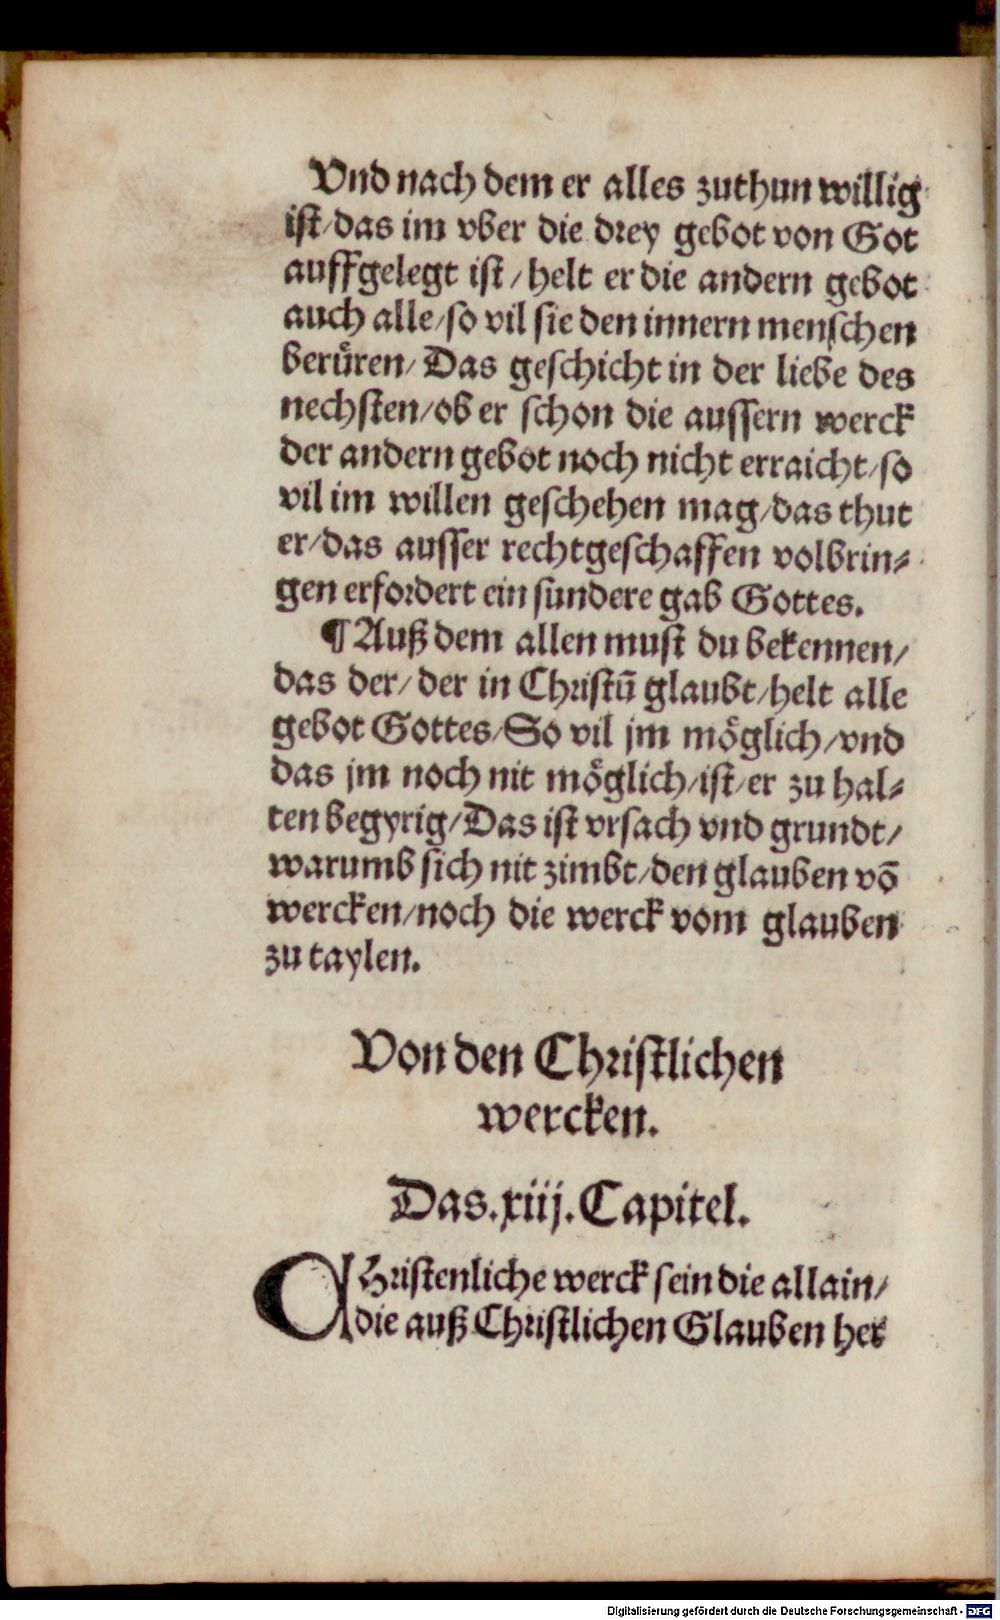 Vnd nach dem er alles zuthun willig
ist/das im vber die drey gebot von Got
auffgelegt ist / helt er die andern gebot
auch alle/so vil sie den innern menschen
beruͤren/ Das geschicht in der liebe des
nechsten/ob er schon die aussern werck
der andern gebot noch nicht erraicht/so
vil im willen geschehen mag/das thut
er/das ausser rechtgeschaffen volbrin⸗
gen erfordert ein sundere gab Gottes.
¶ Auß dem allen must du bekennen/
das der/der in Christū glaubt/helt alle
gebot Gottes/So vil jm möglich/vnd
das jm noch nit möglich/ist/er zu hal⸗
ten begyrig/Das ist vrsach vnd grundt/
warumb sich nit zimbt/den glauben vō
wercken/noch die werck vom glauben
zu taylen.
Von den Christlichen
wercken.
Das.xiij.Capitel.
CHristenliche werck sein die allain/
die auß Christlichen Glauben her
Digitalisierung gefördert durch die Deutsche Forschungsgemeinschaft - DFG